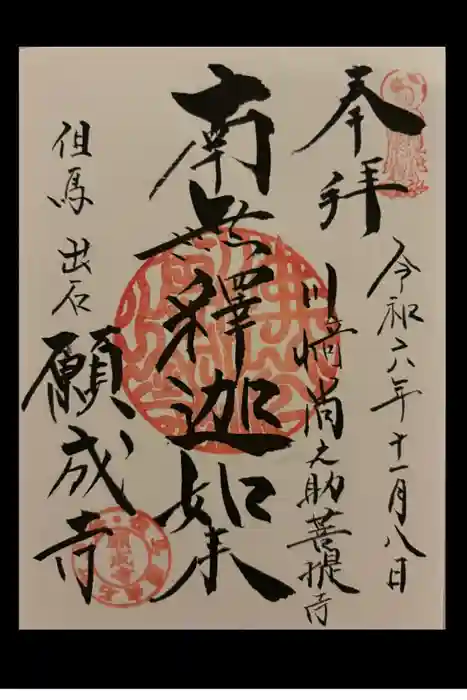 奉拝
令和六年十一月八日
川崎尚之助菩提寺
南無釋迦如来
但馬出石
願成寺